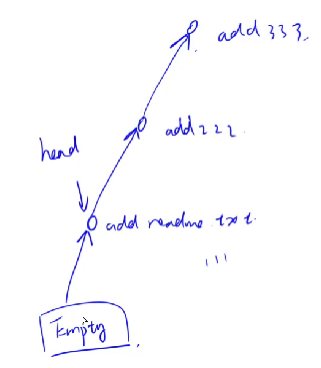 add 333.
add 222.
head
add readme txt.
111
Empty